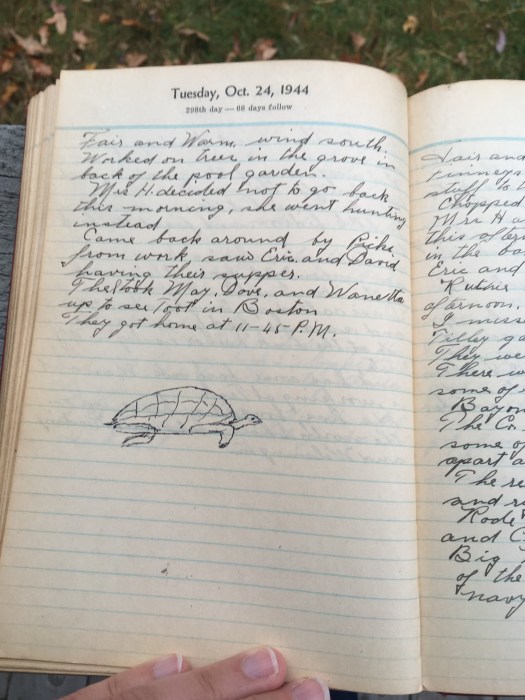 Tuesday, Oct. 24, 1944
298th day — 68 days follow
Fair and Warm, wind south.
Worked on tree, in the grove in
back of the pool garden.
Mrs H. decided not to go back
this morning, she went hunting
instead
Came back around by Pike
from work, saw Eric. and David
having their supper.
took May, Dove, and Wanetta
up to see Toot in Boston
They got home at 11-45 P.M.
Fair and
stuff to
Chopped
Mrs H
this after
in, the ba
Eric and
afternoon,
I miss
They we
There w
some of
Bayon
The Co.
some of
apart a
The re
and r
Rode
and C
Big
of the
navy